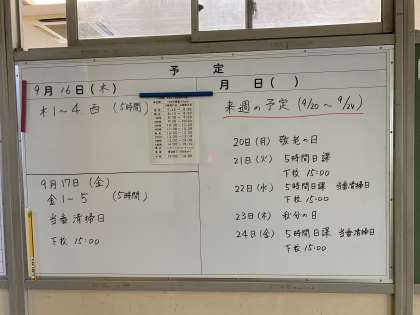 予定
9月16日(木)
木1~4 西 (5時間)
9月17日(金)
金1~5 (5時間)
当番清掃日
下校 15:00
月 日( )
来週の予定 (9/20～9/24)
20日(月) 敬老の日
21日(火) 5時間日課
下校 15:00
22日(水) 5時間日課 当番清掃日
下校 15:00
23日(木) 秋分の日
24日(金) 5時間日課 当番清掃日
下校 15:00